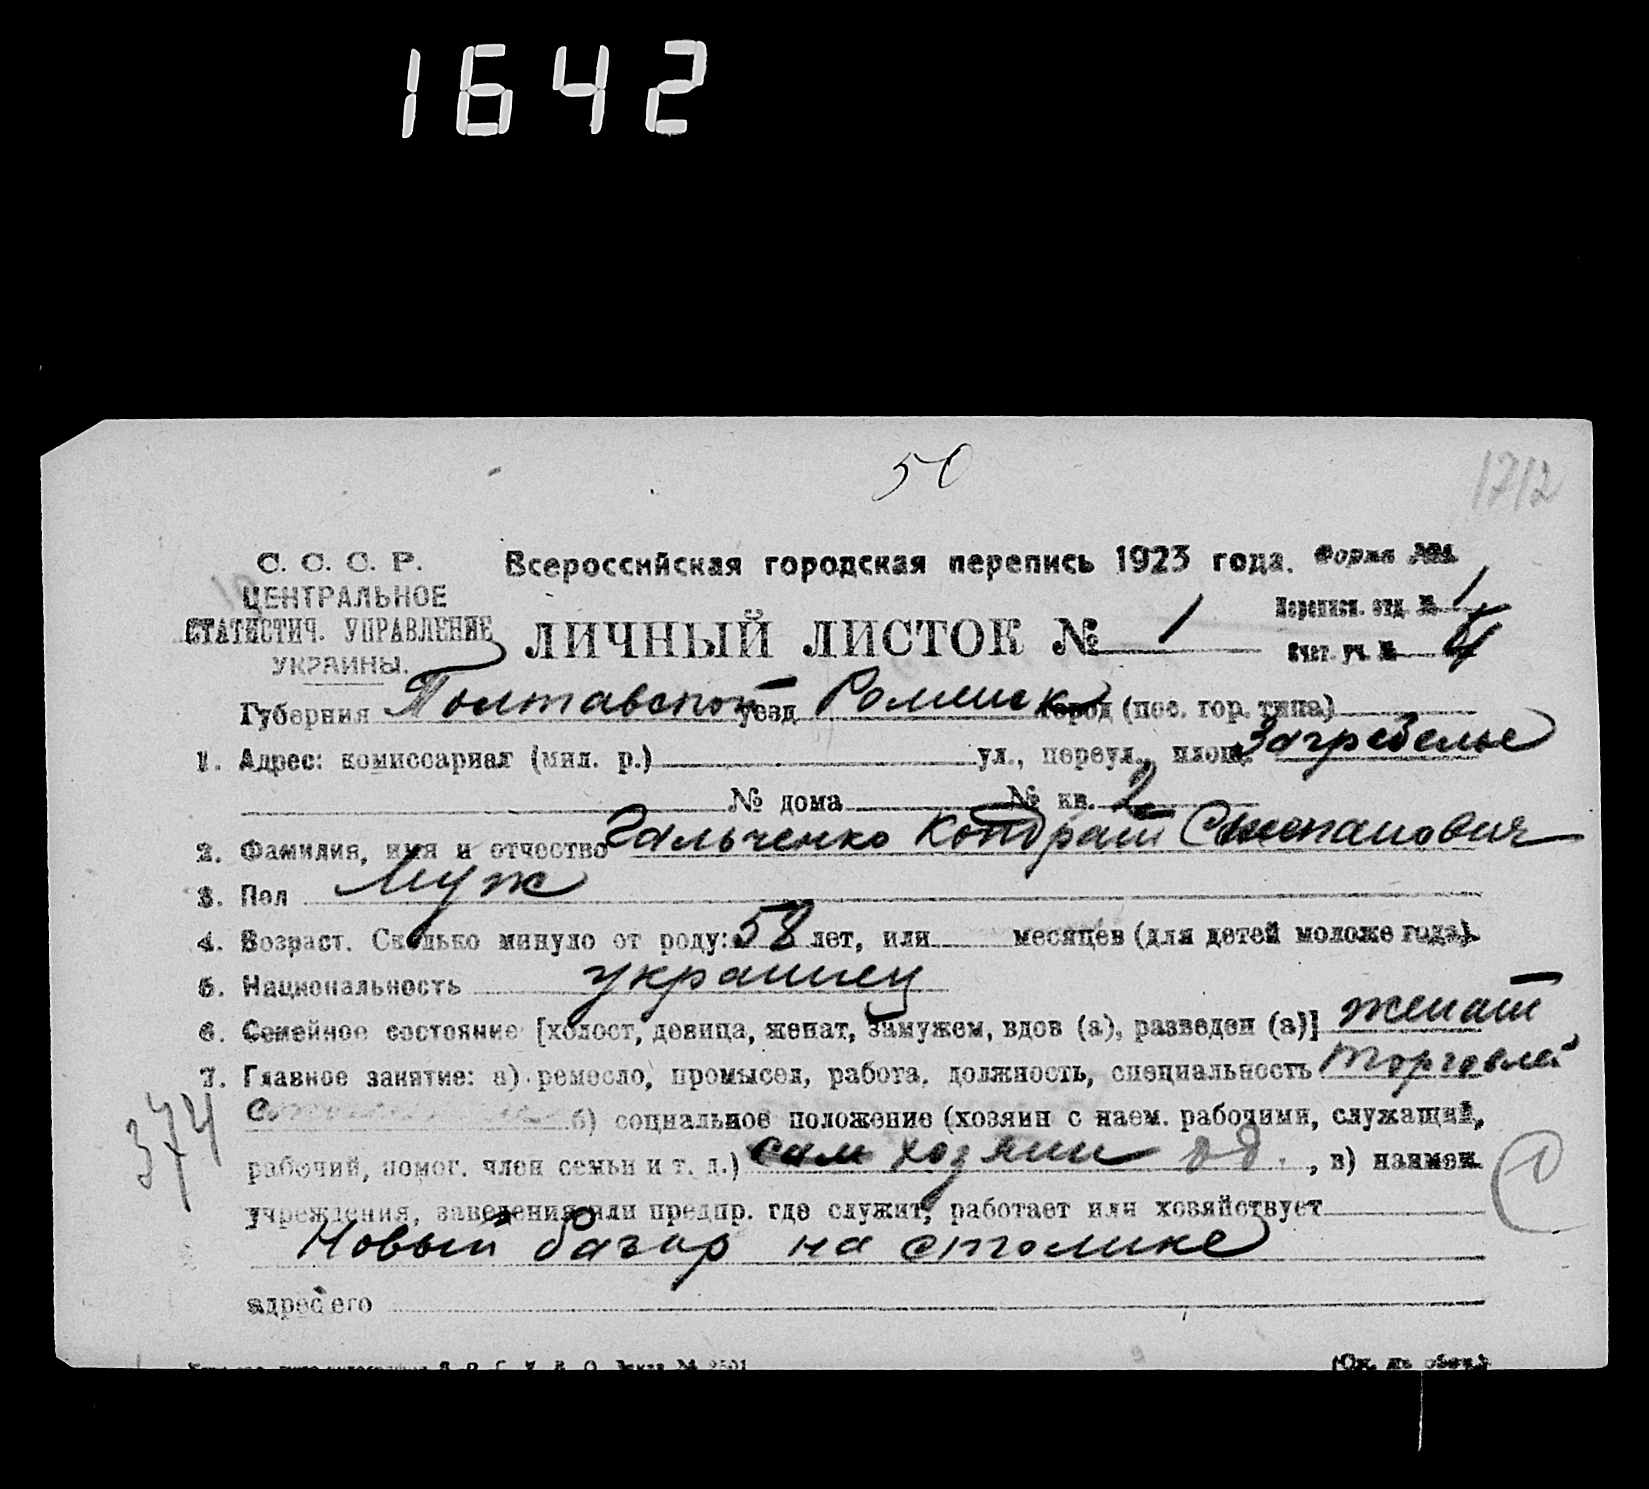 1642
50
1712
С. С. С. Р.
ЦЕНТРАЛЬНОЕ
СТАТИСТИЧ. УПРАВЛЕНИЕ
УКРАИНЫ.
Всероссийская городская перепись 1923 года. Форма №1.
ЛИЧНЫЙ ЛИСТОК № 1
Переписн. отд. № 1
Счет. уч. № 4
Губерния Полтавской уезд Роменск город (пос. гор. типа)
1. Адрес: комиссариат (мил. р.) ул., переул., площ. Загребелье
№ дома № кв. 2
2. Фамилия, имя и отчество Гальченко Кондрат Степанович
3. Пол Муж
4. Возраст. Сколько минуло от роду: 58 лет, или месяцев (для детей моложе года).
5. Национальность украинец
6. Семейное состояние [холост, девица, женат, замужем, вдов (а), разведен (а)] женат
7. Главное занятие: а) ремесло, промысел, работа, должность, специальность торговля
374
б) социальное положение (хозяин с наем. рабочими, служащий,
рабочий, помог. член семьи и т. д.) сам хозяин од. , в) наимен.
учреждения, заведения или предпр. где служит, работает или хозяйствует
Новый базар на столике
адрес его
(См. на обор.)